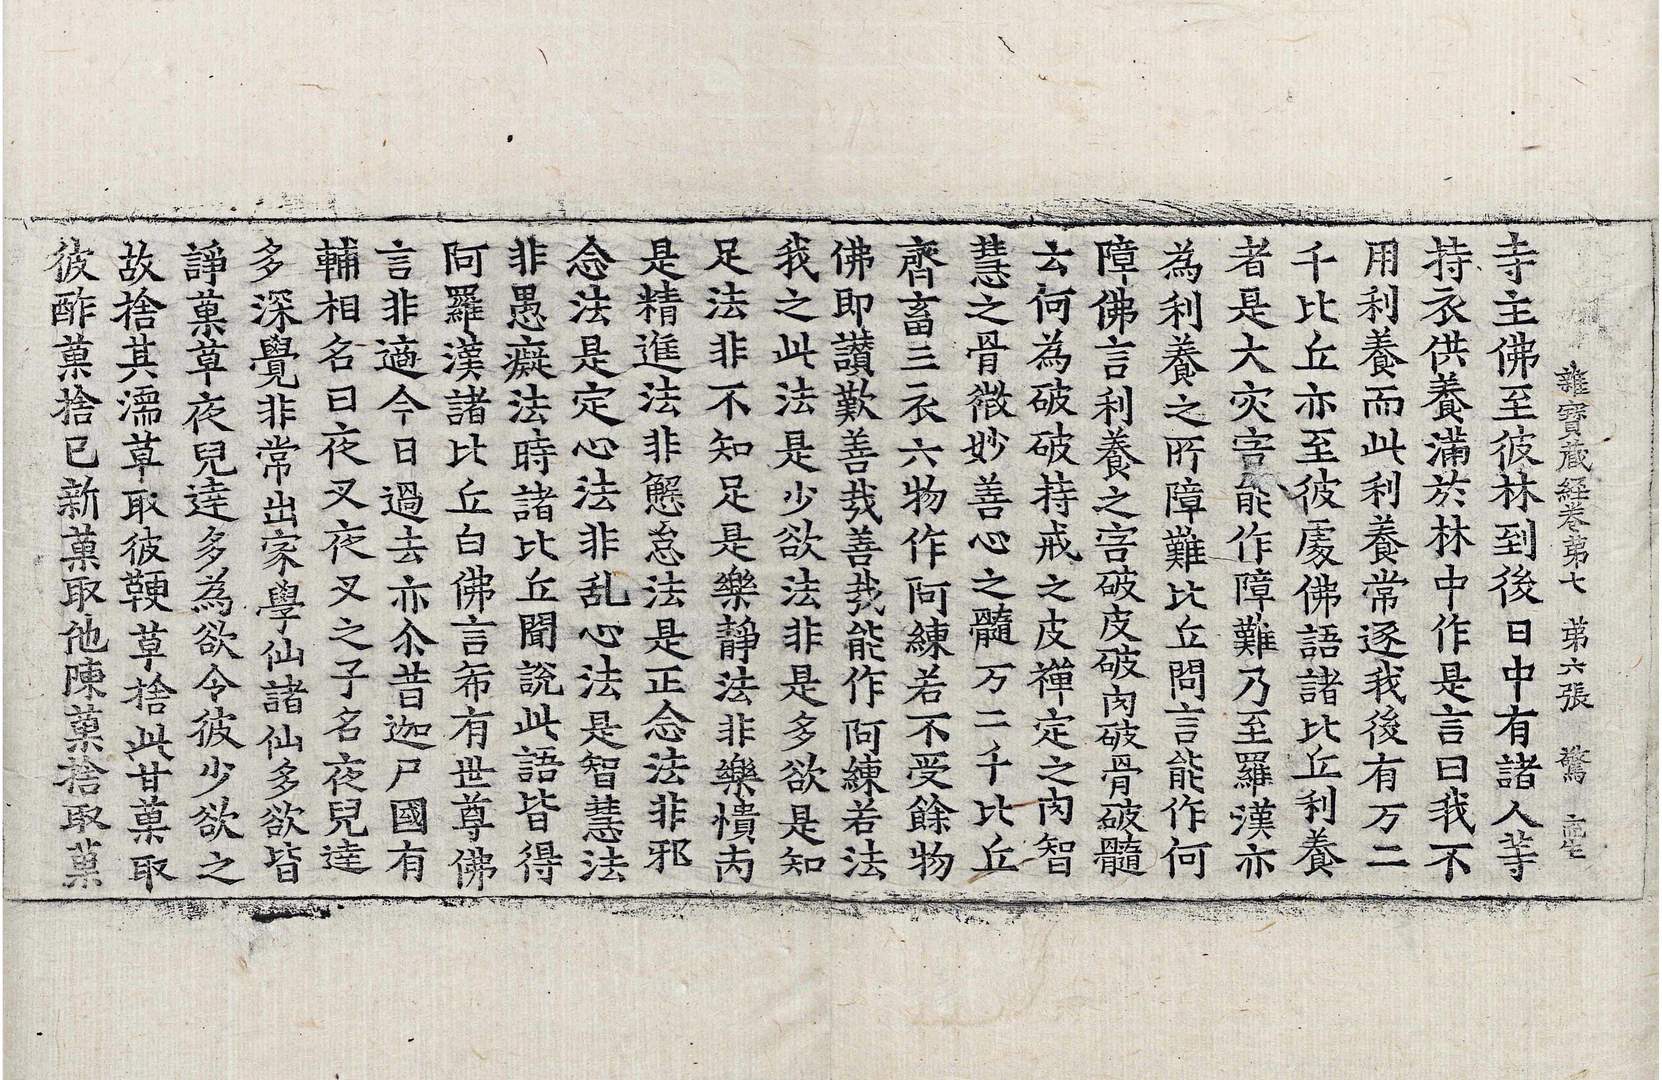 雜寶藏経卷苐七　苐六張　驚
寺主佛至彼林到後日中有諸人䓁
持衣供養滿於林中作是言曰我不
用利養而此利養常逐我後有万二
千比丘亦至彼處佛語諸比丘利養
者是大灾害能作障難乃至羅漢亦
為利養之所障難比丘問言能作何
障佛言利養之害破皮破肉破骨破髓
云何為破破持戒之皮禪定之肉智
慧之骨微妙善心之髓万二千比丘
齊畜三衣六物作阿練若不受餘物
佛即讃歎善㢤善㢤能作阿練若法
我之此法是少欲法非是多欲是知
足法非不知足是樂静法非樂憒丙
是精進法非懈怠法是正念法非邪
念法是定心法非乱心法是智慧法
非愚癡法時諸比丘聞說此語皆得
阿羅漢諸比丘白佛言希有世尊佛
言非適今日過去亦尒昔迦尸國有
輔相名曰夜叉夜叉之子名夜兒達
多深覺非常出家學仙諸仙多欲皆
諍菓草夜兒達多為欲令彼少欲之
故捨其濡草取彼鞕草捨此甘菓取
彼酢菓捨已新菓取他陳菓捨取菓